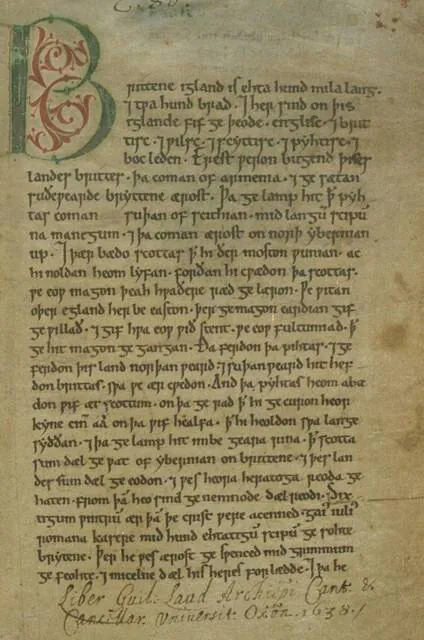 Brittene igland is ehta hund mila lang.
⁊ tƿa hund brad. ⁊ her sind on þis
iglande fif ge þeode. englisc. ⁊ brit
tisc. ⁊ ƿilsc. ⁊ scyttisc. ⁊ pyhtisc. ⁊
boc leden. Erest ƿeron bugend þises
landes brittes. þa coman of armenia. ⁊ ge sætan
suðeƿearde bryttene ærost. Þa ge lamp hit þ̄ pyh
tas coman suþan of scithian. mid langū scipū
na manegum. ⁊ þa coman ærost on norþ ybernian
up. ⁊ þær bædo scottas þ̄ hi ðer moston ƿunian. ac
hi noldan heom lyfan. forðan hi cƿædon þa scottas.
ƿe eoƿ magon þeah hƿaðere ræd ge læron. Ƿe ƿitan
oþer egland her be easton. þer ge magon eardian gif
ge ƿillað. ⁊ gif hƿa eoƿ ƿið stent. ƿe eoƿ fultumiað. þ̄
ge hit magon ge gangan. Ða ferdon þa pihtas. ⁊ ge
ferdon þis land norþan ƿeard. ⁊ suþan ƿeard hit hef
don brittas. sƿa ƿe ær cƿedon. And þa pyhtas heom abæ
don ƿif æt scottum. on þa ge rad þ̄ hi ge curon heor
kyne cinn aa on þa ƿif healfa. þ̄ hi heoldon sƿa lange
syððan. ⁊ þa ge lamp hit imbe geara rina. þ̄ scotta
sum dæl ge ƿat of ybernian on brittene. ⁊ þes lan
des sum dæl ge eodon. ⁊ ƿes heora heratoga reoda ge
haten. from þā heo sind ge nemnode dæl reodi. Six
tigum ƿintrū ær þā þe crist ƿere acenned. gai' iuli'
romana kasere mid hund ehtatigū scipū ge sohte
brytene. Þer he ƿes ærost ge sƿenced mid grimmum
ge feohte. ⁊ micelne dæl his heres forlædde. ⁊ þa he
Liber Guil: Laud Archiepi Cant. &
Cancillar. Universit. Oxōn. 1638.